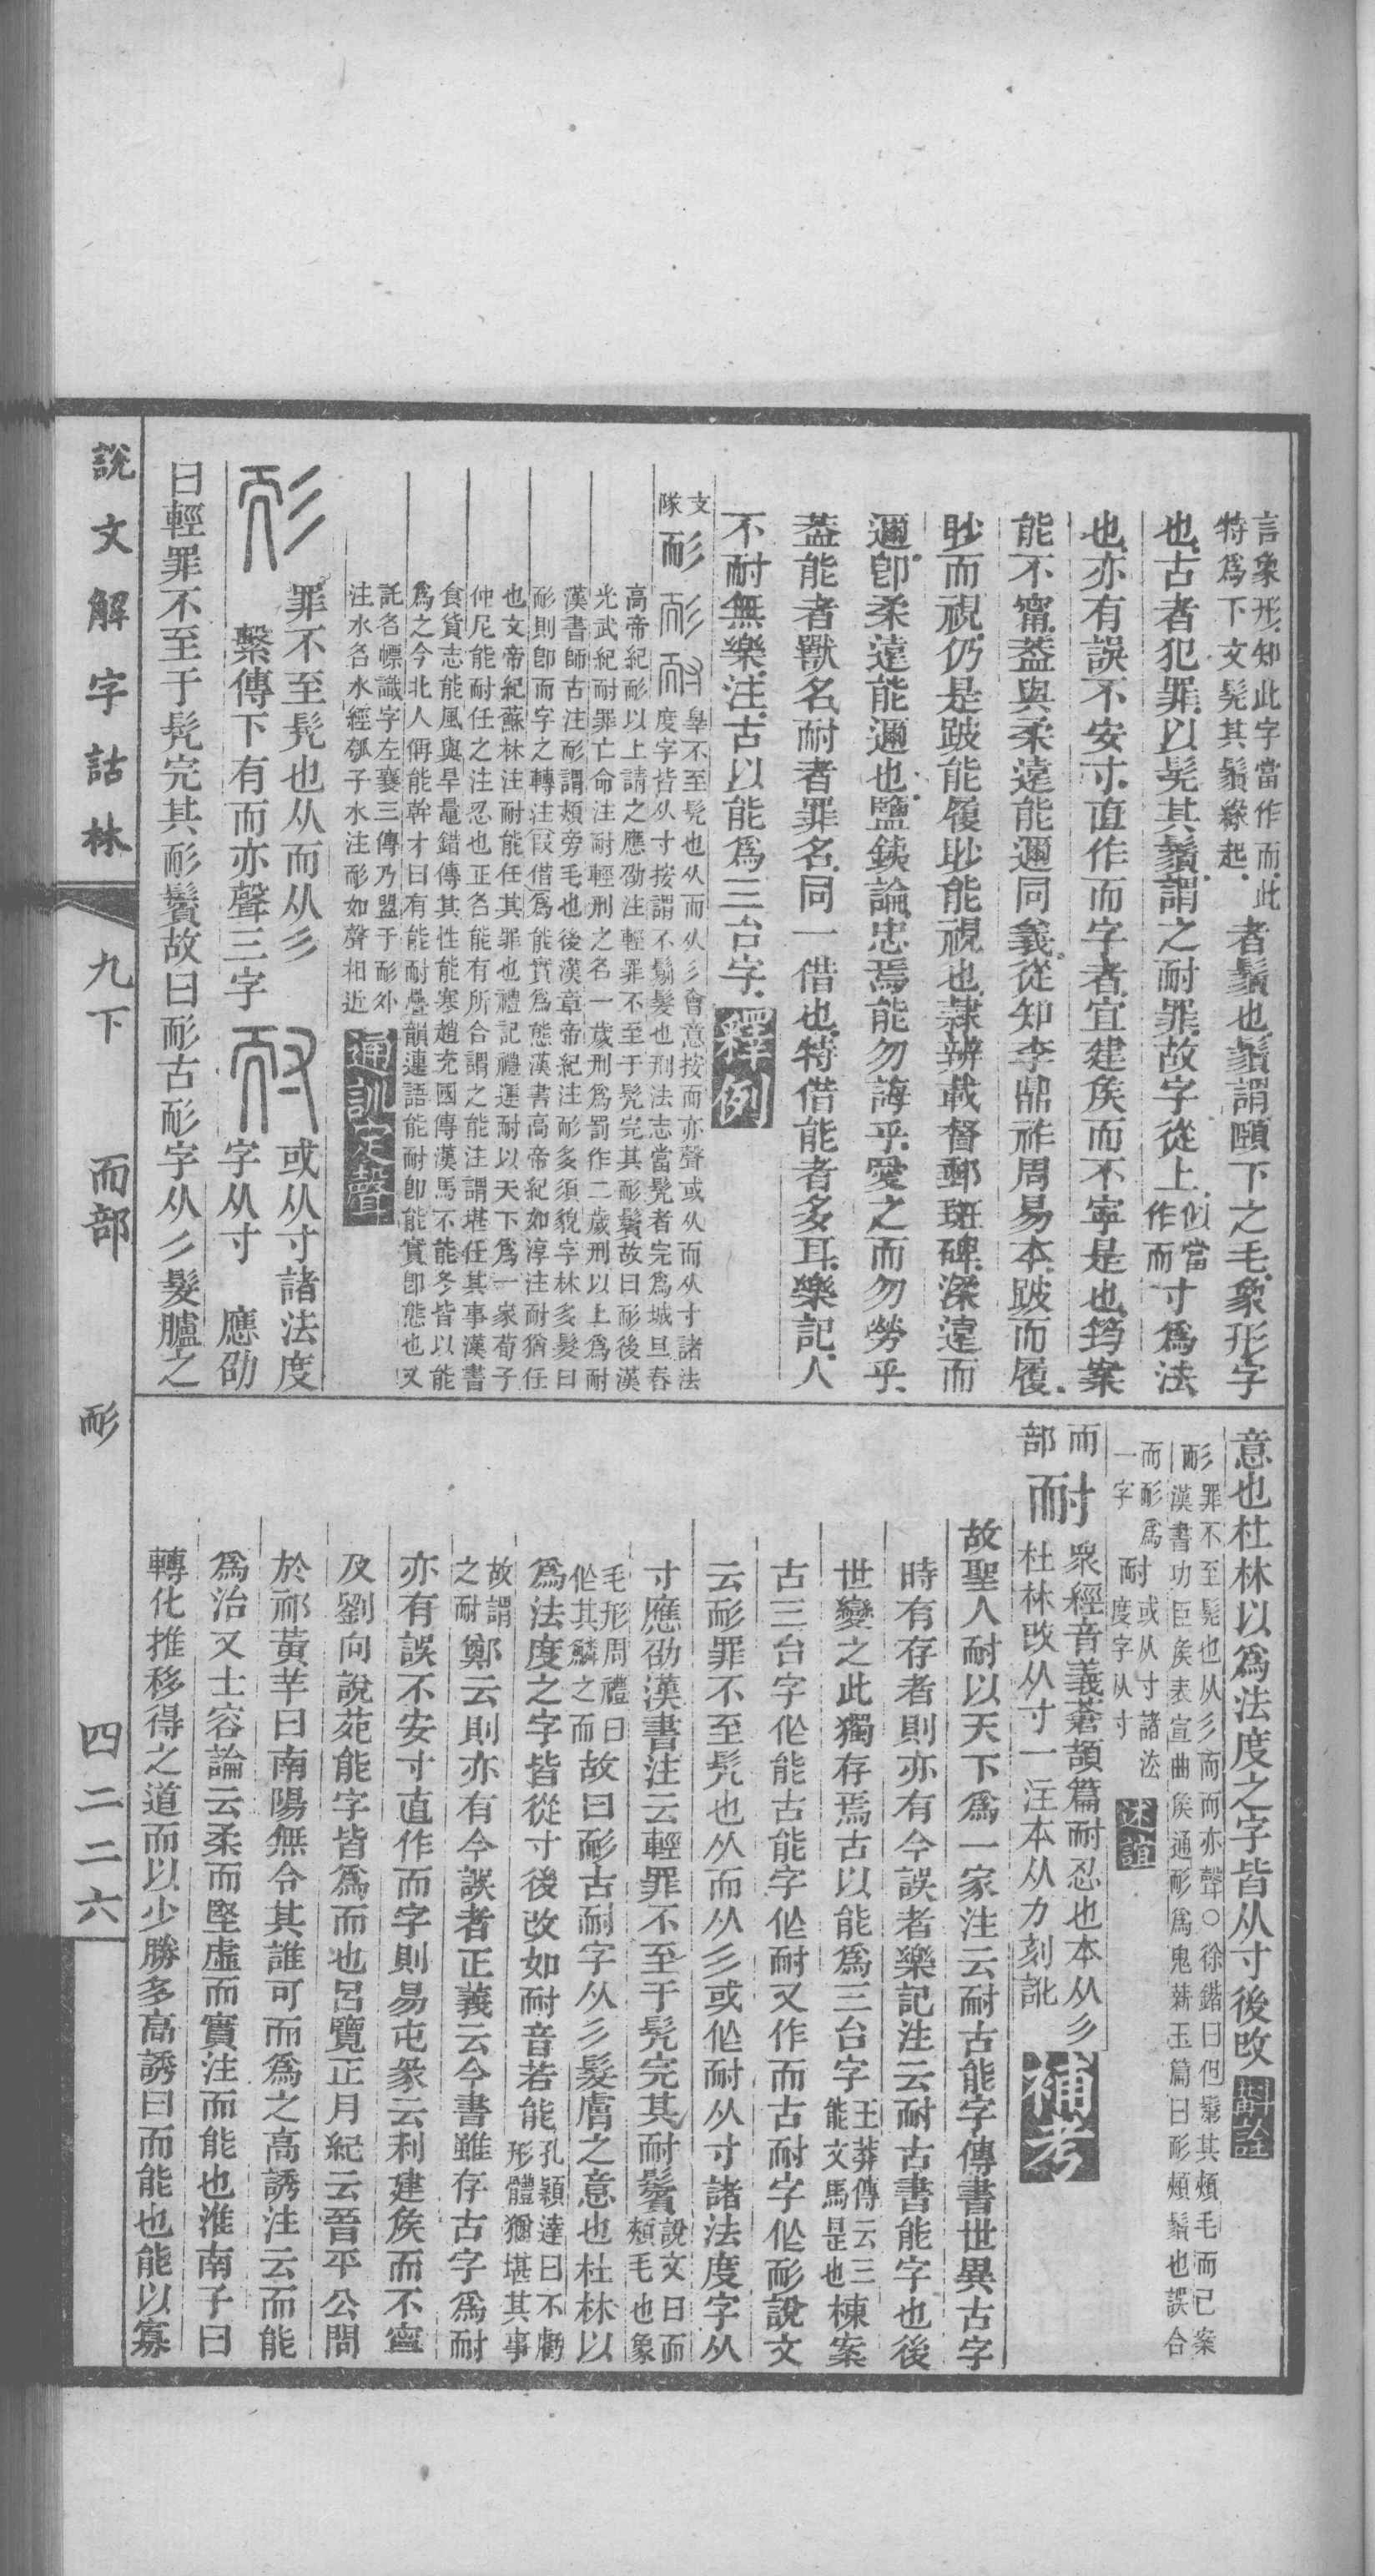 言象形知此字當作而此
特爲下文髡其鬚緣起
者鬚也鬚謂頤下之毛象形字
也古者犯罪以髡其鬚謂之耐罪故字從上
似當
作而
寸爲法
也亦有誤不安寸直作而字者宜建矦而不寍是也筠案
能不甯葢與柔遠能邇同義從知李鼎祚周易本跛而履
眇而視仍是跛能履眇能視也隷辨載督郵斑碑渘遠而
邇卽柔遠能邇也鹽鐵論忠焉能勿誨乎愛之而勿勞乎
葢能者獸名耐者罪名同一借也特借能者多耳樂記人
不耐無樂注古以能爲三台字
釋例
支
隊
耏
罪不至髡也从而从彡會意按而亦聲或从而从寸諸法
度字皆从寸按謂不鬄髮也刑法志當髡者完爲城旦舂
高帝紀耏以上請之應劭注輕罪不至于髡完其耏鬢故曰耏後漢
光武紀耐罪亡命注耐輕刑之名一歲刑爲罰作二歲刑以上爲耐
漢書師古注耏謂頰旁毛也後漢章帝紀注耏多須貌字林多髮曰
耏則卽而字之轉注叚借爲能實爲態漢書高帝紀如淳注耐猶任
也文帝紀蘇林注耐能任其罪也禮記禮運耐以天下爲一家荀子
仲尼能耐任之注忍也正名能有所合謂之能注謂堪任其事漢書
食貨志能風與旱鼂錯傳其性能寒趙充國傳漢馬不能冬皆以能
爲之今北人偁能幹才曰有能耐疊韻連語能耐卽能實卽態也又
託名幖識字左襄三傳乃盟于耏外
注水名水經瓠子水注耏如聲相近
通訓定聲
罪不至髡也从而从彡
繫傳下有而亦聲三字
或从寸諸法度
字从寸
應劭
曰輕罪不至于髡完其耏鬢故曰耏古耏字从彡髮膚之
意也杜林以爲法度之字皆从寸後改
斠詮
耏
罪不至髡也从彡而而亦聲○徐鍇曰但鬄其頰毛而已案
漢書功臣矦表宣曲矦通耏爲鬼薪玉篇曰耏頰鬚也誤合
而耏爲
一字
耐
或从寸諸法
度字从寸
述誼
而
部
耐
眾經音義蒼頡篇耐忍也本从彡
杜林改从寸一注本从力刻訛
補考
故聖人耐以天下爲一家注云耐古能字傳書世異古字
時有存者則亦有今誤者樂記注云耐古書能字也後
世變之此獨存焉古以能爲三台字
王莽傳云三
能文馬是也
棟案
古三台字作能古能字作耐又作而古耐字作耏說文
云耏罪不至髡也从而从彡或作耐从寸諸法度字从
寸應劭漢書注云輕罪不至于髡完其耐鬢
說文曰而
頰毛也象
毛形周禮曰
作其鱗之而
故曰耏古耐字从彡髮膚之意也杜林以
爲法度之字皆從寸後改如耐音若能
孔穎達曰不虧
形體猶堪其事
故謂
之耐
鄭云則亦有今誤者正義云今書雖存古字爲耐
亦有誤不安寸直作而字則易屯彖云利建矦而不寍
及劉向說苑能字皆爲而也呂覽正月紀云晉平公問
於祁黃羊曰南陽無令其誰可而爲之高誘注云而能
爲治又士容論云柔而堅虛而實注而能也淮南子曰
轉化推移得之道而以少勝多高誘曰而能也能以寡
說文解字詁林
九下
而部
耏
四二二六